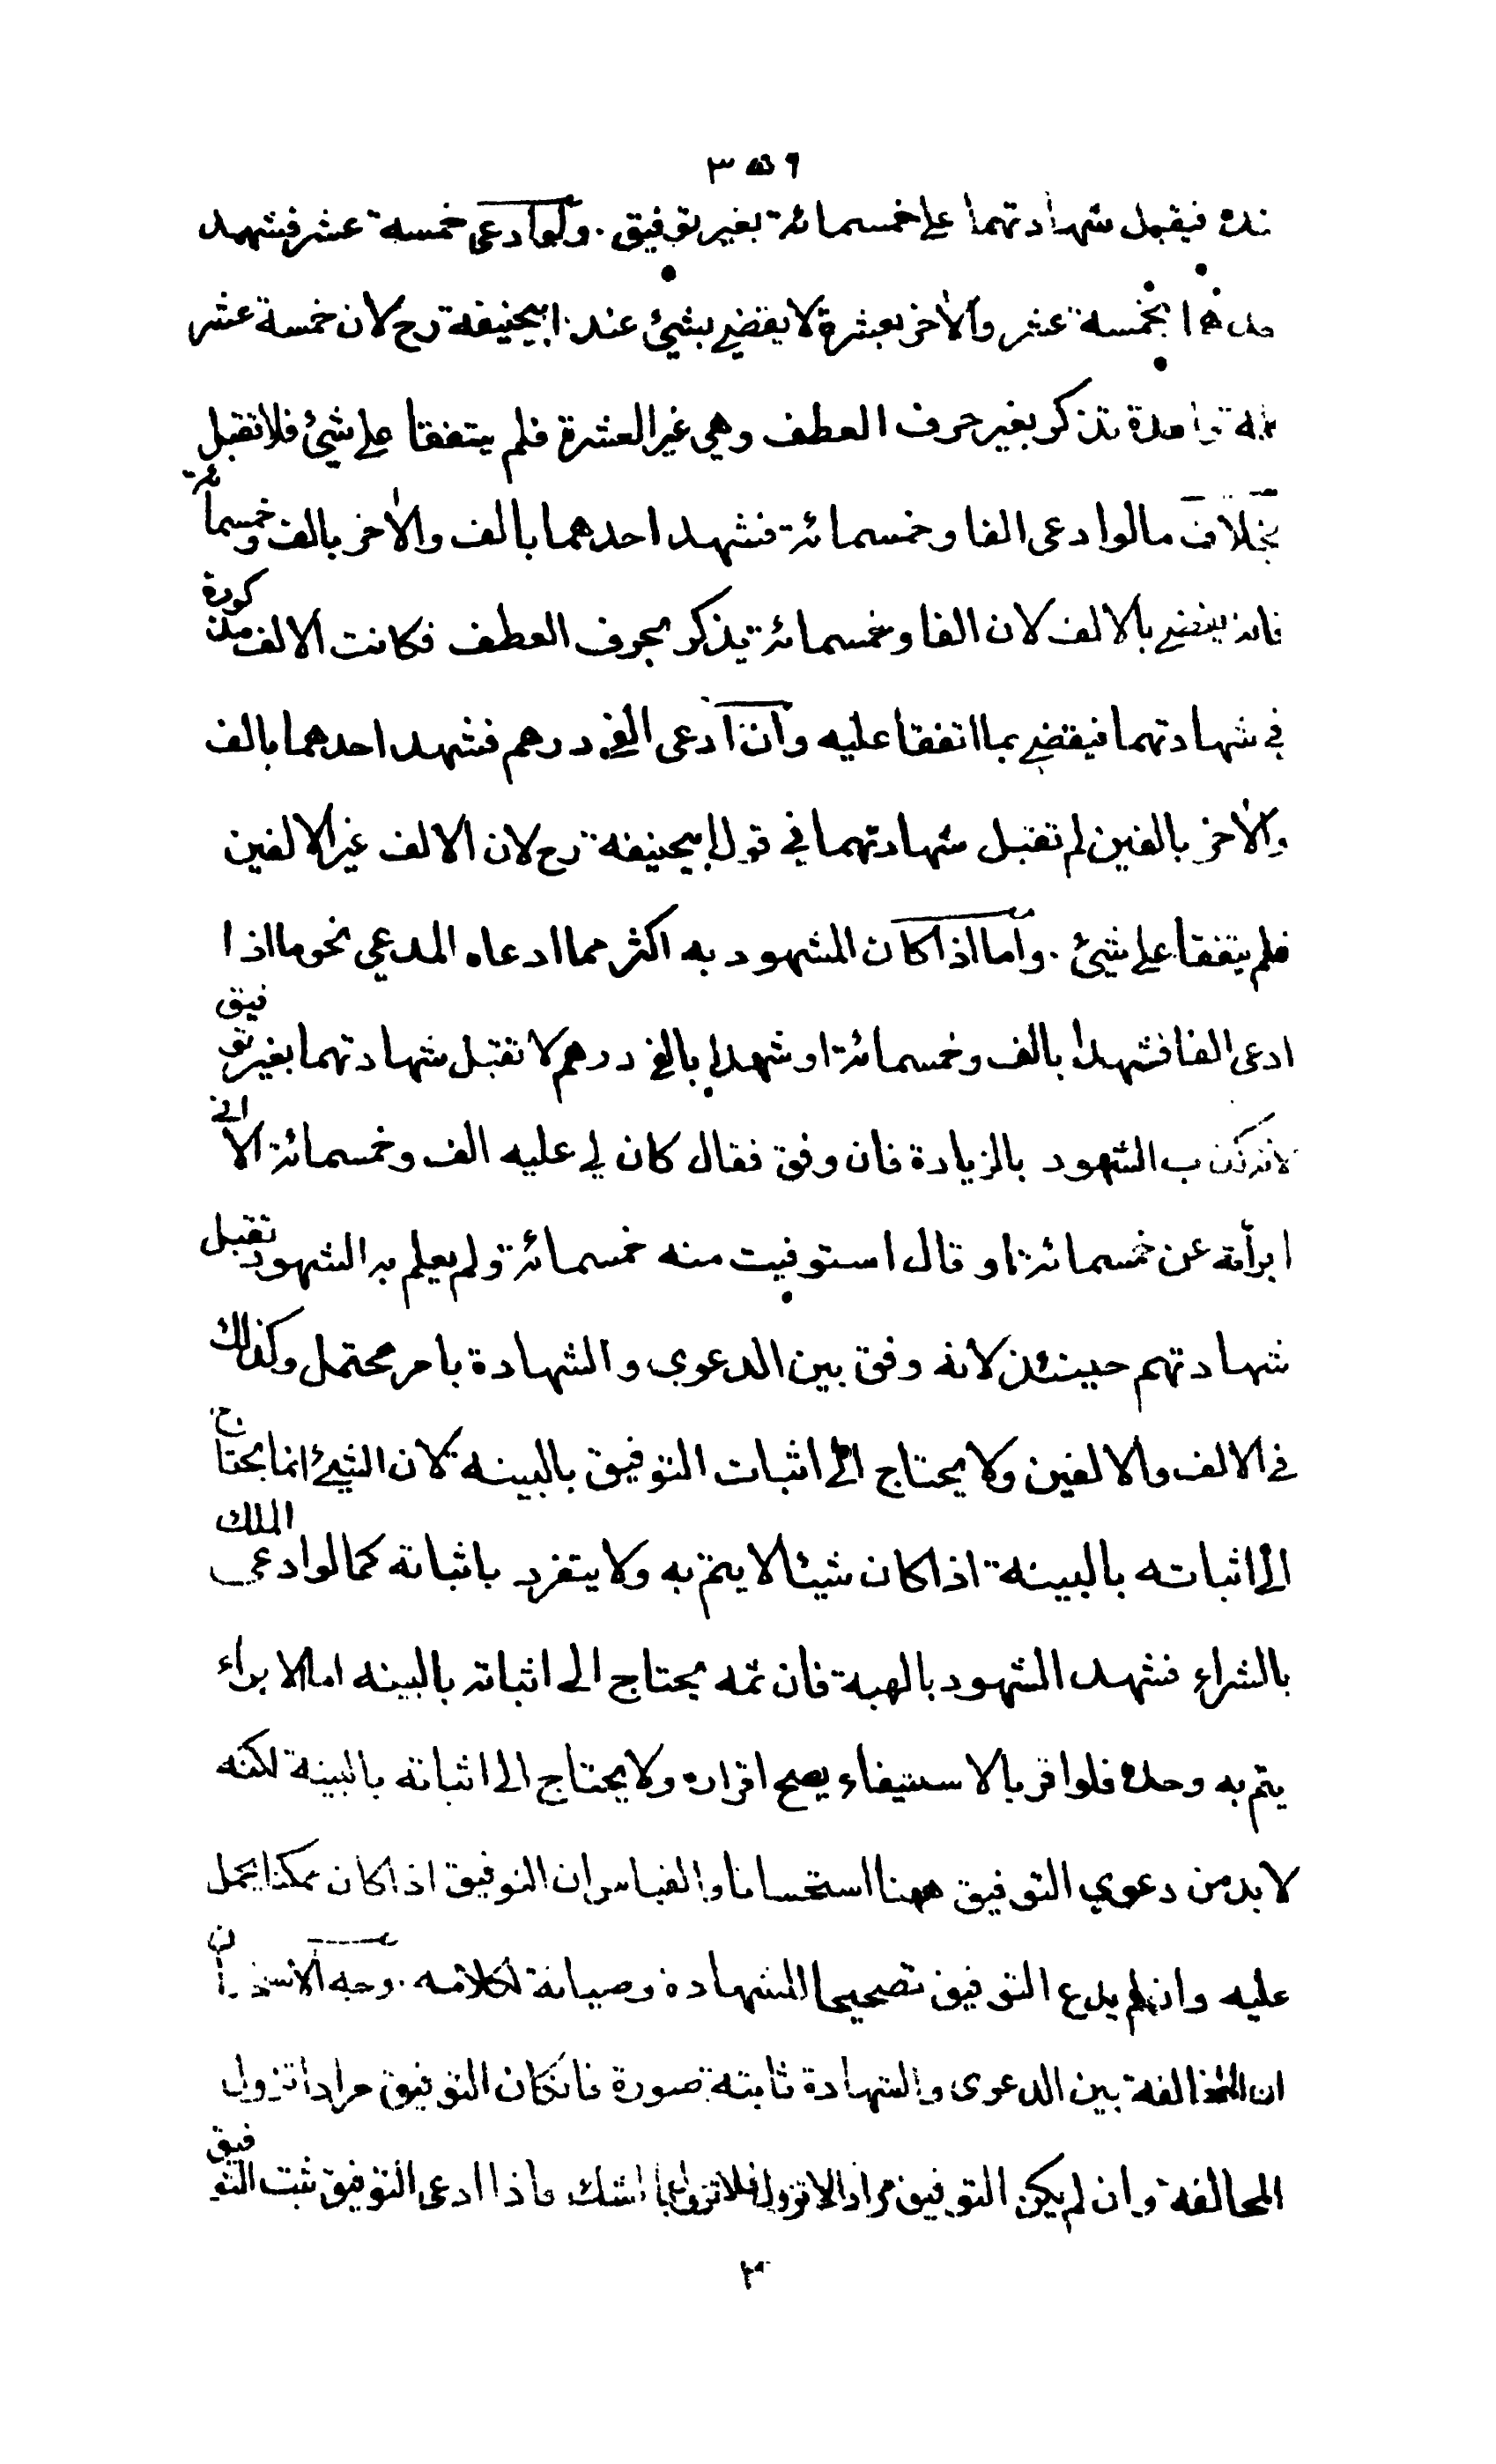 ٣٥٦
فيقبل شهادتهما على خمسمائة بغير توفيق . ولو ادعى خمسة عشر فشهد
بخمسة عشر والآخر بعشرة لا يقضي بشيئ عند ابيحنيفة رح لان خمسة عشر
تذكر بغير حرف العطف وهي غير العشرة فلم يتفقا على شيئ فلا تقبل
بخلاف ما لوادعى الفا وخمسمائة فشهد احدهما بالف والآخر بالف وخمسمائة
فانه يقضي بالالف لان الفا وخمسمائة يذكر بحرف العطف فكانت الالف مذكورة
في شهادتهما فيقضي بما اتفقا عليه وان ادعى الفي درهم فشهد احدهما بالف
والآخر بالفين لم تقبل شهادتهما في قول ابيحنيفة رح لان الالف غير الالفين
فلم يتفقا على شيئ . واما اذا كان المشهود به اكثر مما ادعاه المدعي نحو ما اذا
ادعى الفا فشهدا بالف وخمسمائة او شهدا بالفي درهم لا تقبل شهادتهما بغير توفيق
لانه كذب الشهود بالزيادة فان وفق فقال كان لي عليه الف وخمسمائة الا اني
ابرأته عن خمسمائة او قال استوفيت منه خمسمائة ولم يعلم به الشهود تقبل
شهادتهم حينئذ لانه وفق بين الدعوي والشهادة بامر محتمل وكذلك
في الالف والالفين ولا يحتاج الى اثبات التوفيق بالبينة لان الشيئ انما يحتاج
الى اثباته بالبينة اذا كان شيئا لا يتم به ولا يتفرد باثباته كما لوادعى الملك
بالشراء فشهد الشهود بالهبة فان ثمه يحتاج الى اثباته بالبينه اما الابراء
يتم به وحده فلو اقر بالاستيفاء يصح اقراره ولا يحتاج الى اثباته بالبينة لكنه
لا بد من دعوي التوفيق ههنا استحسانا والقياس ان التوفيق اذا كان ممكنا يحمل
عليه وان لم يدع التوفيق تصحيحا للشهادة وصيانة لكلامه . وجه الاستحسان
ان المخالفة بين الدعوى والشهادة ثابتة صورة فان كان التوفيق مرادا تزول
المخالفة وان لم يكن التوفيق مرادا لا تزول فلا تزول بالشك فاذا ادعى التوفيق ثبت التوفيق
٣